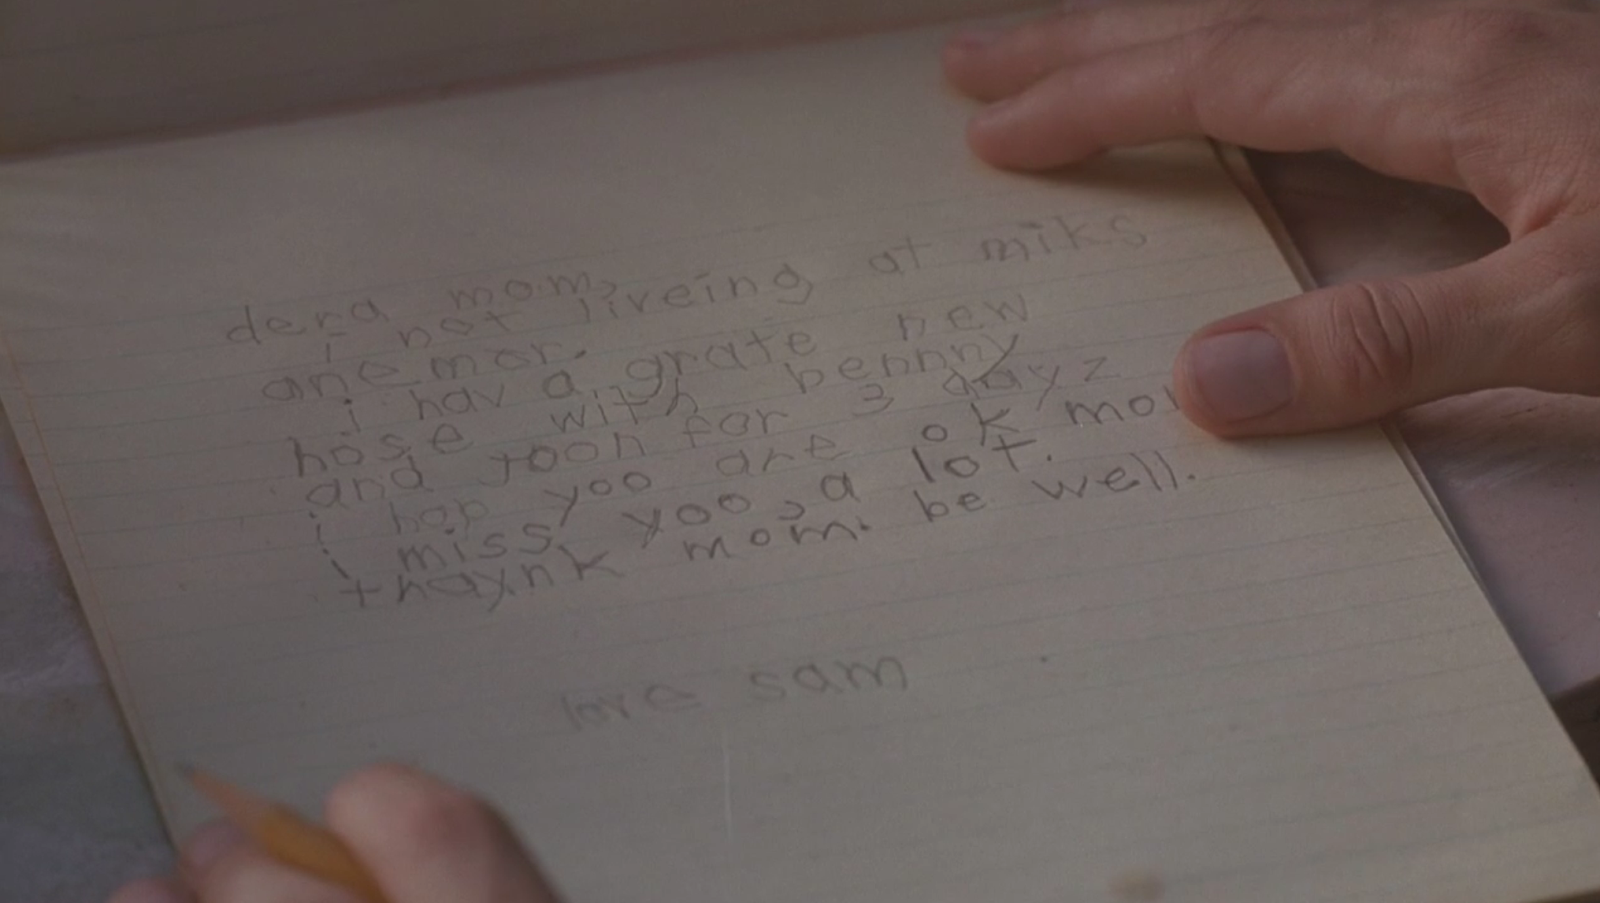 dera mom,
i not liveing at miks
anemor.
i hav a grate new
hose with bennny
and jooh for 3 dayz
i hop yoo are ok mom
i miss yoo, a lot.
thaynk mom. be well.
love sam